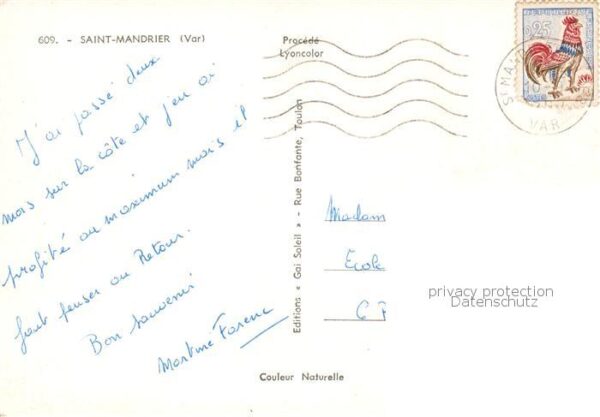 609. - SAINT-MANDRIER (Var)
Procédé
Lyoncolor
J'ai passé deux
mois sur la côte et j'en ai
profité au maximum mais il
faut penser au Retour.
Bon souvenir
Martine
Editions « Gai Soleil » - Rue Bonfante, Toulon
Couleur Naturelle
0,25
VAR
Madam
Ecole
privacy protection
Datenschutz